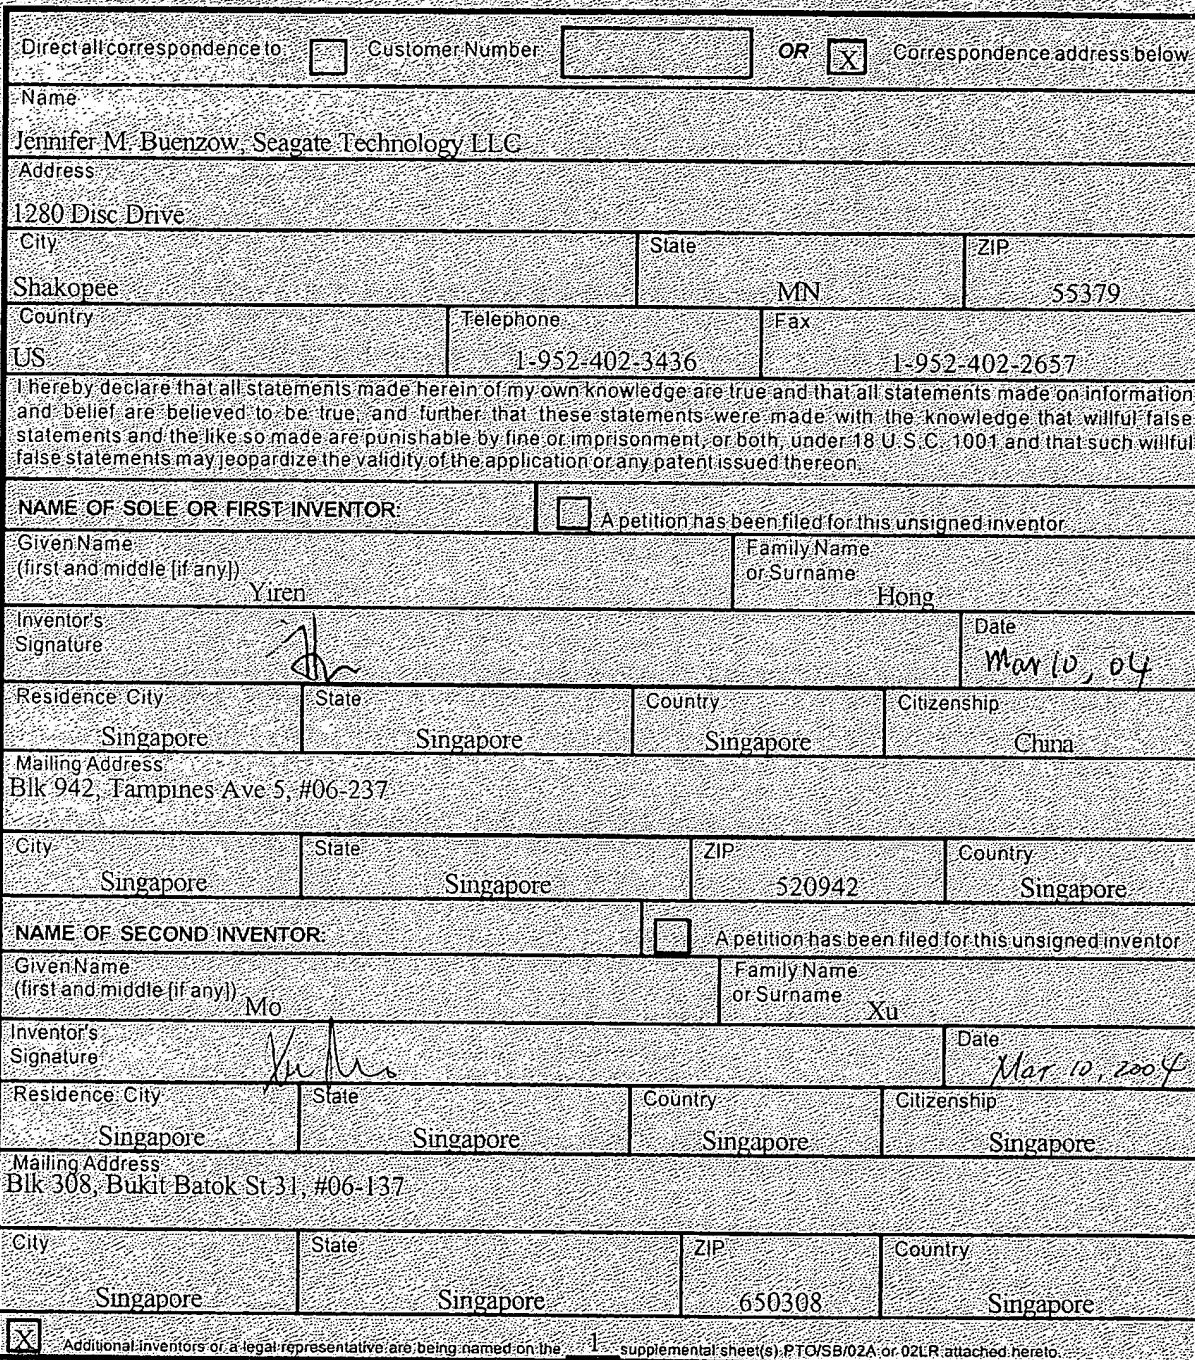 Direct all correspondence to: Customer Number OR X Correspondence address below
Name
Jennifer M. Buenzow, Seagate Technology LLC
Address
1280 Disc Drive
City State ZIP
Shakopee MN 55379
Country Telephone Fax
US 1-952-402-3436 1-952-402-2657
I hereby declare that all statements made herein of my own knowledge are true and that all statements made on information
and belief are believed to be true, and further that these statements were made with the knowledge that willful false
statements and the like so made are punishable by fine or imprisonment, or both, under 18 U.S.C. 1001 and that such willful
false statements may jeopardize the validity of the application or any patent issued thereon.
NAME OF SOLE OR FIRST INVENTOR: A petition has been filed for this unsigned inventor
Given Name Family Name
(first and middle [if any]) or Surname
Yiren Hong
Inventor's Date
Signature Mar 10, 04
Residence: City State Country Citizenship
Singapore Singapore Singapore China
Mailing Address
Blk 942, Tampines Ave 5, #06-237
City State ZIP Country
Singapore Singapore 520942 Singapore
NAME OF SECOND INVENTOR: A petition has been filed for this unsigned inventor
Given Name Family Name
(first and middle [if any]) Mo or Surname Xu
Inventor's Date
Signature Xu Mo Mar 10, 2004
Residence: City State Country Citizenship
Singapore Singapore Singapore Singapore
Mailing Address
Blk 308, Bukit Batok St 31, #06-137
City State ZIP Country
Singapore Singapore 650308 Singapore
X Additional inventors or a legal representative are being named on the 1 supplemental sheet(s) PTO/SB/02A or 02LR attached hereto.